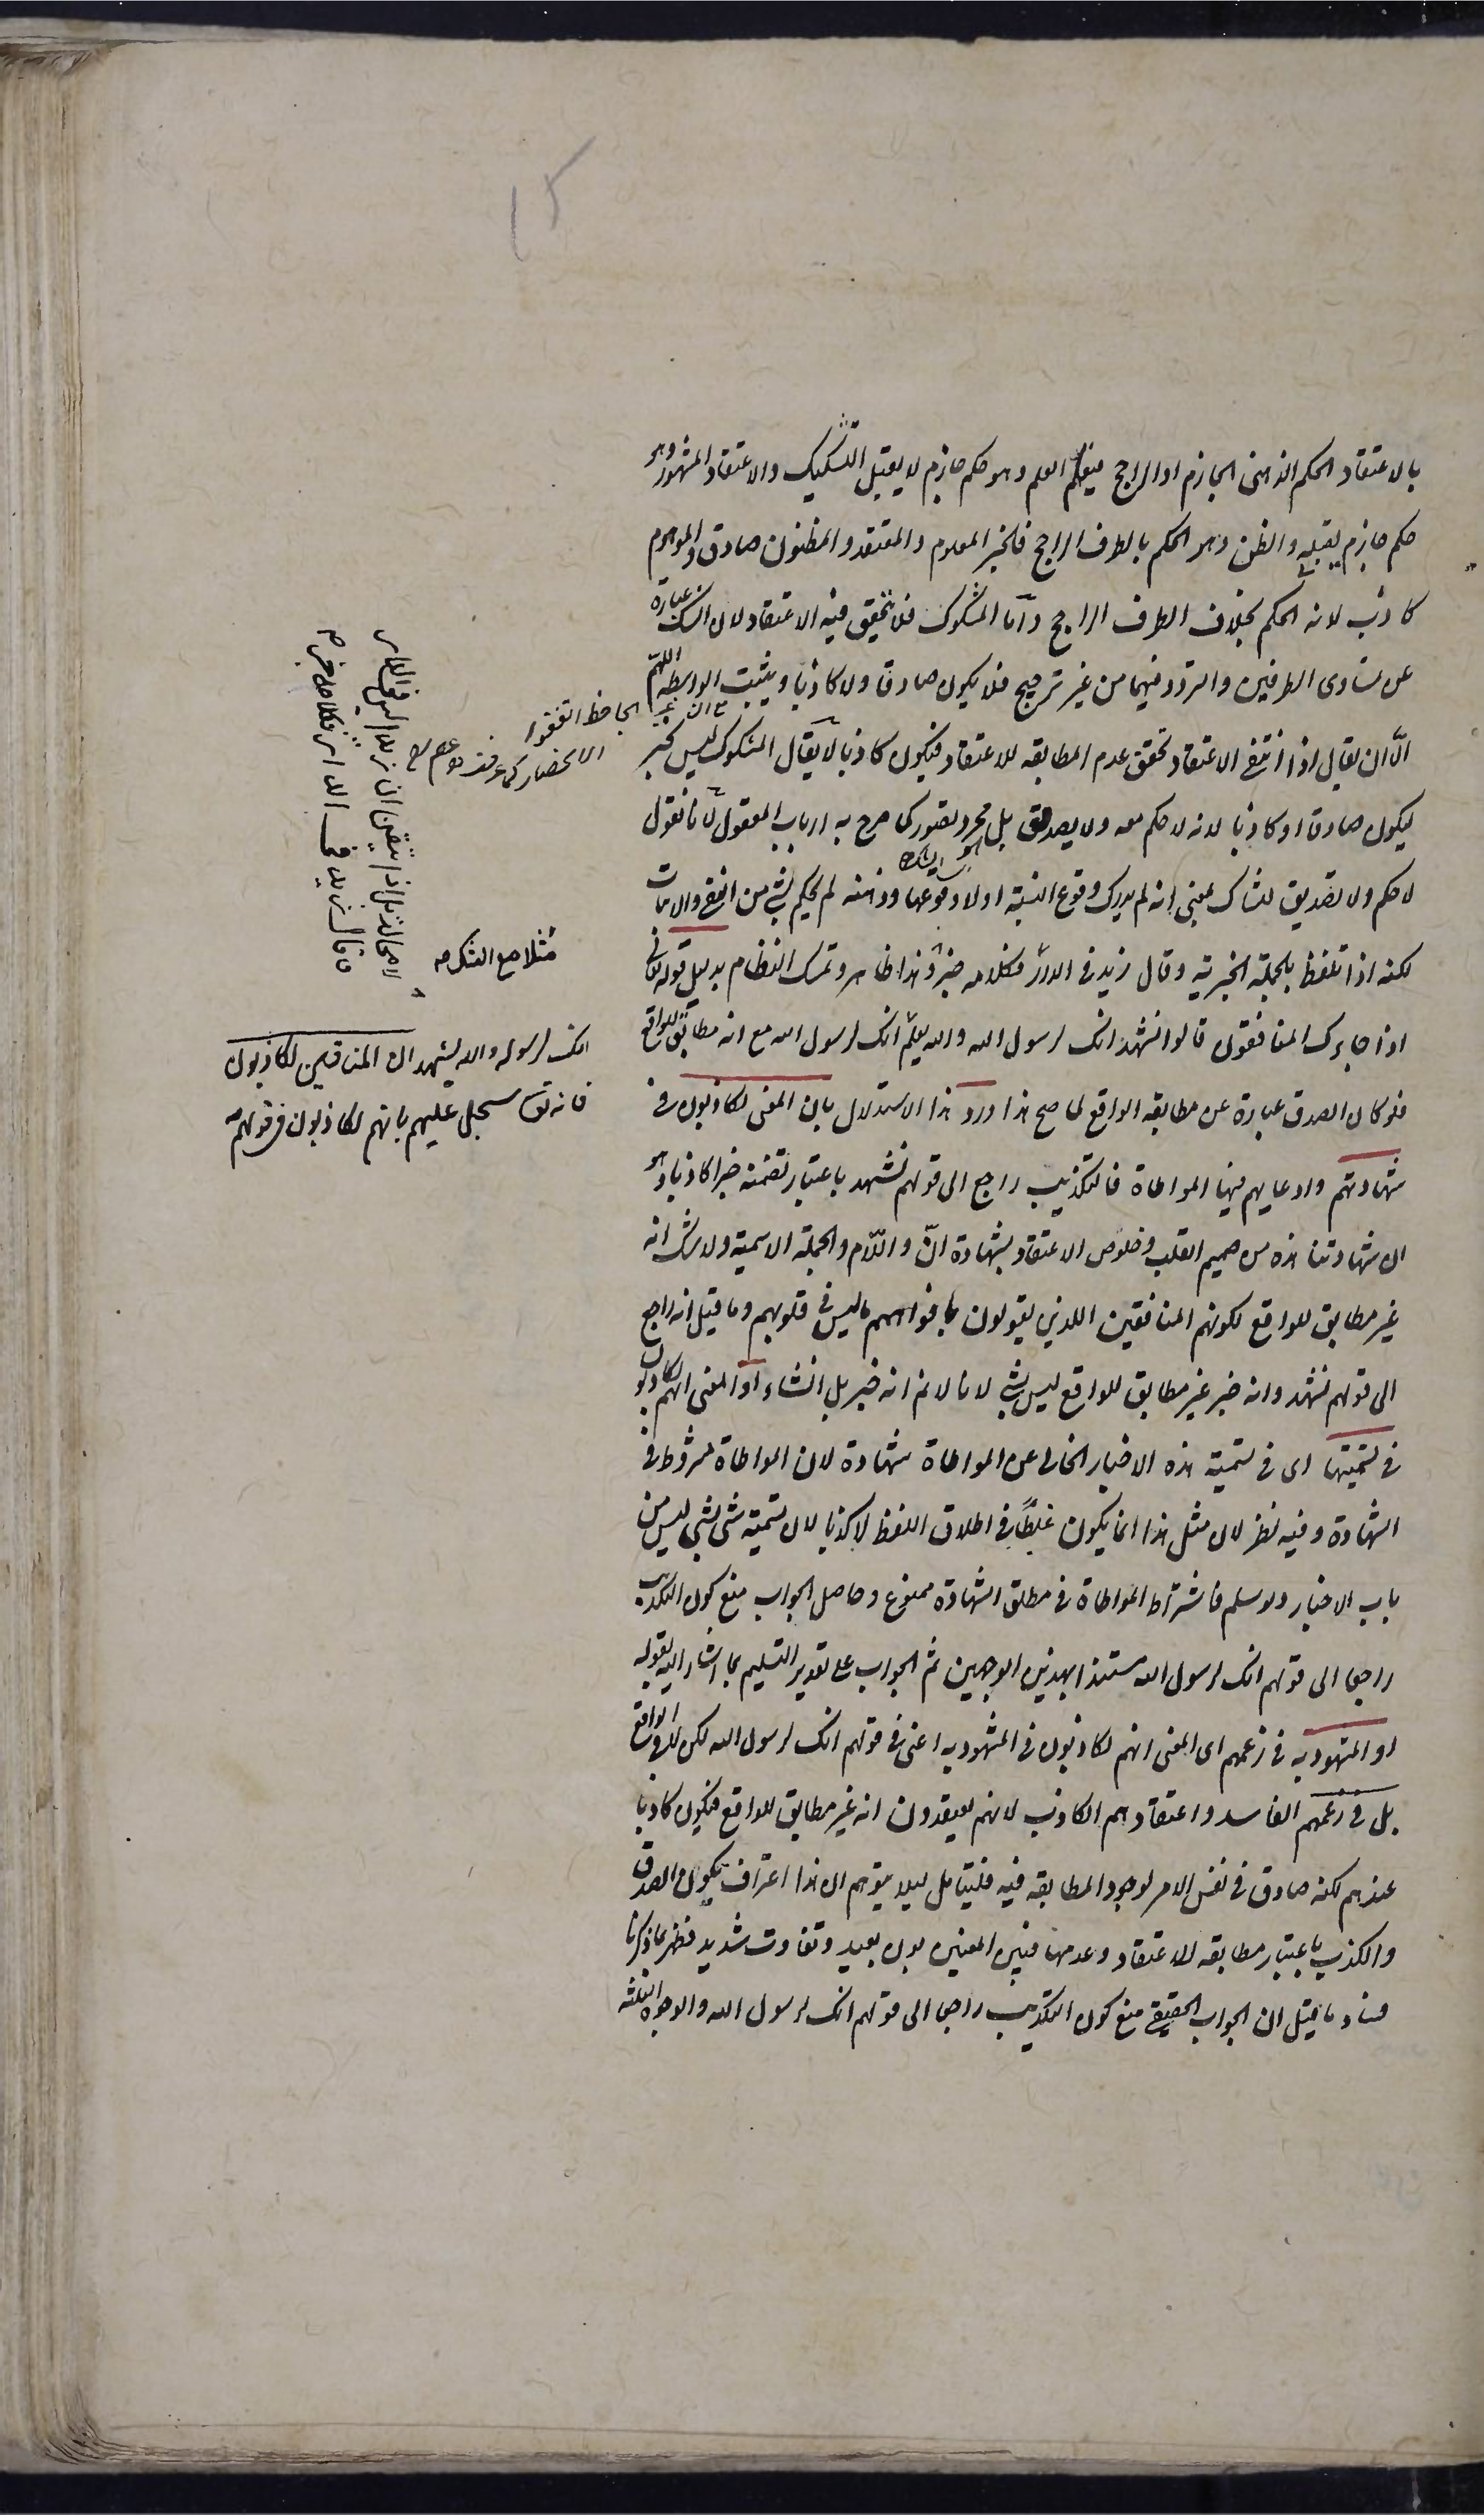 ١٥
بالاعتقاد الحكم الذهنى الجازم او الراجح فيعم العلم وهو حكم جازم لا يقبل التشكيك والاعتقاد المشهور وهو
حكم جازم يقبله والظن وهو الحكم بالطرف الراجح فالخبر المعلوم والمعتقد والمظنون صادق والموهوم
كاذب لانه الحكم بخلاف الطرف الراجح واما المشكوك فلا يتحقق فيه الاعتقاد لان الشك عبارة
عن تساوى الطرفين والتردد فيهما من غير ترجيح فلا يكون صادقا ولا كاذبا ويثبت الواسطه اللهم
الّا ان يقال اذا انتفى الاعتقاد تحقق عدم المطابقه للاعتقاد فيكون كاذبا لا يقال المشكوك ليس بخبر
ليكون صادقا او كاذبا لانه لا حكم معه ولا تصديق بل مجرد تصور كما صرح به ارباب المعقول لانا نقول
لا حكم ولا تصديق للشاك بمعنى انه لم يدرك وقوع النسبة او لا وقوعها وذهنه لم يحكم بشئ من النفى والاثبات
لكنه اذا تلفظ بالجملة الخبرية وقال زيد فى الدار فكلامه خبر وهذا ظاهر وتمسك النظام بدليل قوله تعالى
اذا جاءك المنافقون قالوا نشهد انك لرسول الله والله يعلم انك لرسول الله مع انه مطابق للواقع
فلو كان الصدق عبارة عن مطابقه الواقع لما صح هذا ورد هذا الاستدلال بان المعنى لكاذبون فى
شهادتهم وادعايهم فيها المواطاة فالتكذيب راجع الى قولهم نشهد باعتبار تضمنه خبرا كاذبا وهو
ان شهادتنا هذه من صميم القلب وخلوص الاعتقاد بشهادة انّ واللّام والجملة الاسمية ولا شك انه
غير مطابق للواقع لكونهم المنافقين اللذين يقولون بافواههم ما ليس فى قلوبهم وما قيل انه راجع
الى قولهم نشهد وانه خبر غير مطابق للواقع ليس بشئ لانا لا نم انه خبر بل انشاء او المعنى انهم لكاذبون
فى تسميتها اى فى تسمية هذه الاخبار الخالى عن المواطاة شهادة لان المواطاة مشروط فى
الشهادة وفيه نظر لان مثل هذا انما يكون غلطا فى اطلاق اللفظ لا كذبا لان تسمية شئ بشئ ليس من
باب الاخبار ولو سلم فاشتراط المواطاة فى مطلق الشهادة ممنوع وحاصل الجواب منع كون التكذيب
راجعا الى قولهم انك لرسول الله مستندا بهذين الوجهين ثم الجواب على تقدير التسليم بما اشار اليه بقوله
او المشهود به فى زعمهم اى المعنى انهم لكاذبون فى المشهود به اعنى فى قولهم انك لرسول الله لكن لا فى الواقع
بل فى زعمهم الفاسد واعتقادهم الكاذب لانهم يعتقدون انه غير مطابق للواقع فيكون كاذبا
عندهم لكنه صادق فى نفس الامر لوجود المطابقه فيه فليتأمل ليلا يتوهم ان هذا اعتراف بكون الصدق
والكذب باعتبار مطابقه الاعتقاد وعدمها فبين المعنيين بون بعيد وتفاوت شديد فظهر بما ذكرنا
فساد ما قيل ان الجواب الحقيقى منع كون التكذيب راجعا الى قولهم انك لرسول الله والوجوه الثلثه
الجاحظ اتفقوا
مثلا مع الشك صه
انك لرسوله والله يشهد ان المنافقين لكاذبون
فانه تعالى سجل عليهم بانهم لكاذبون فى قولهم